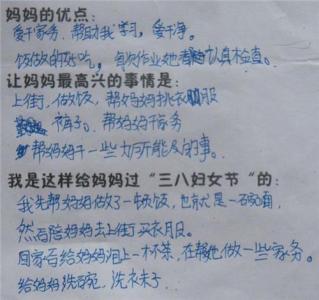 妈妈的优点:
爱干家务、帮助我学习，爱干净。
饭做的好吃，每次作业她都认真检查。
让妈妈最高兴的事情是:
上街、做饭，帮妈妈挑衣服
裤子。帮妈妈干家务
帮妈妈干一些力所能及的事。
我是这样给妈妈过“三八妇女节”的:
我先帮妈妈做了一顿饭，也就是一碗面，
然后陪妈妈去上街买衣服。
回家后给妈妈泡上一杯茶，在帮她做一些家务。
给妈妈洗碗，洗衣子